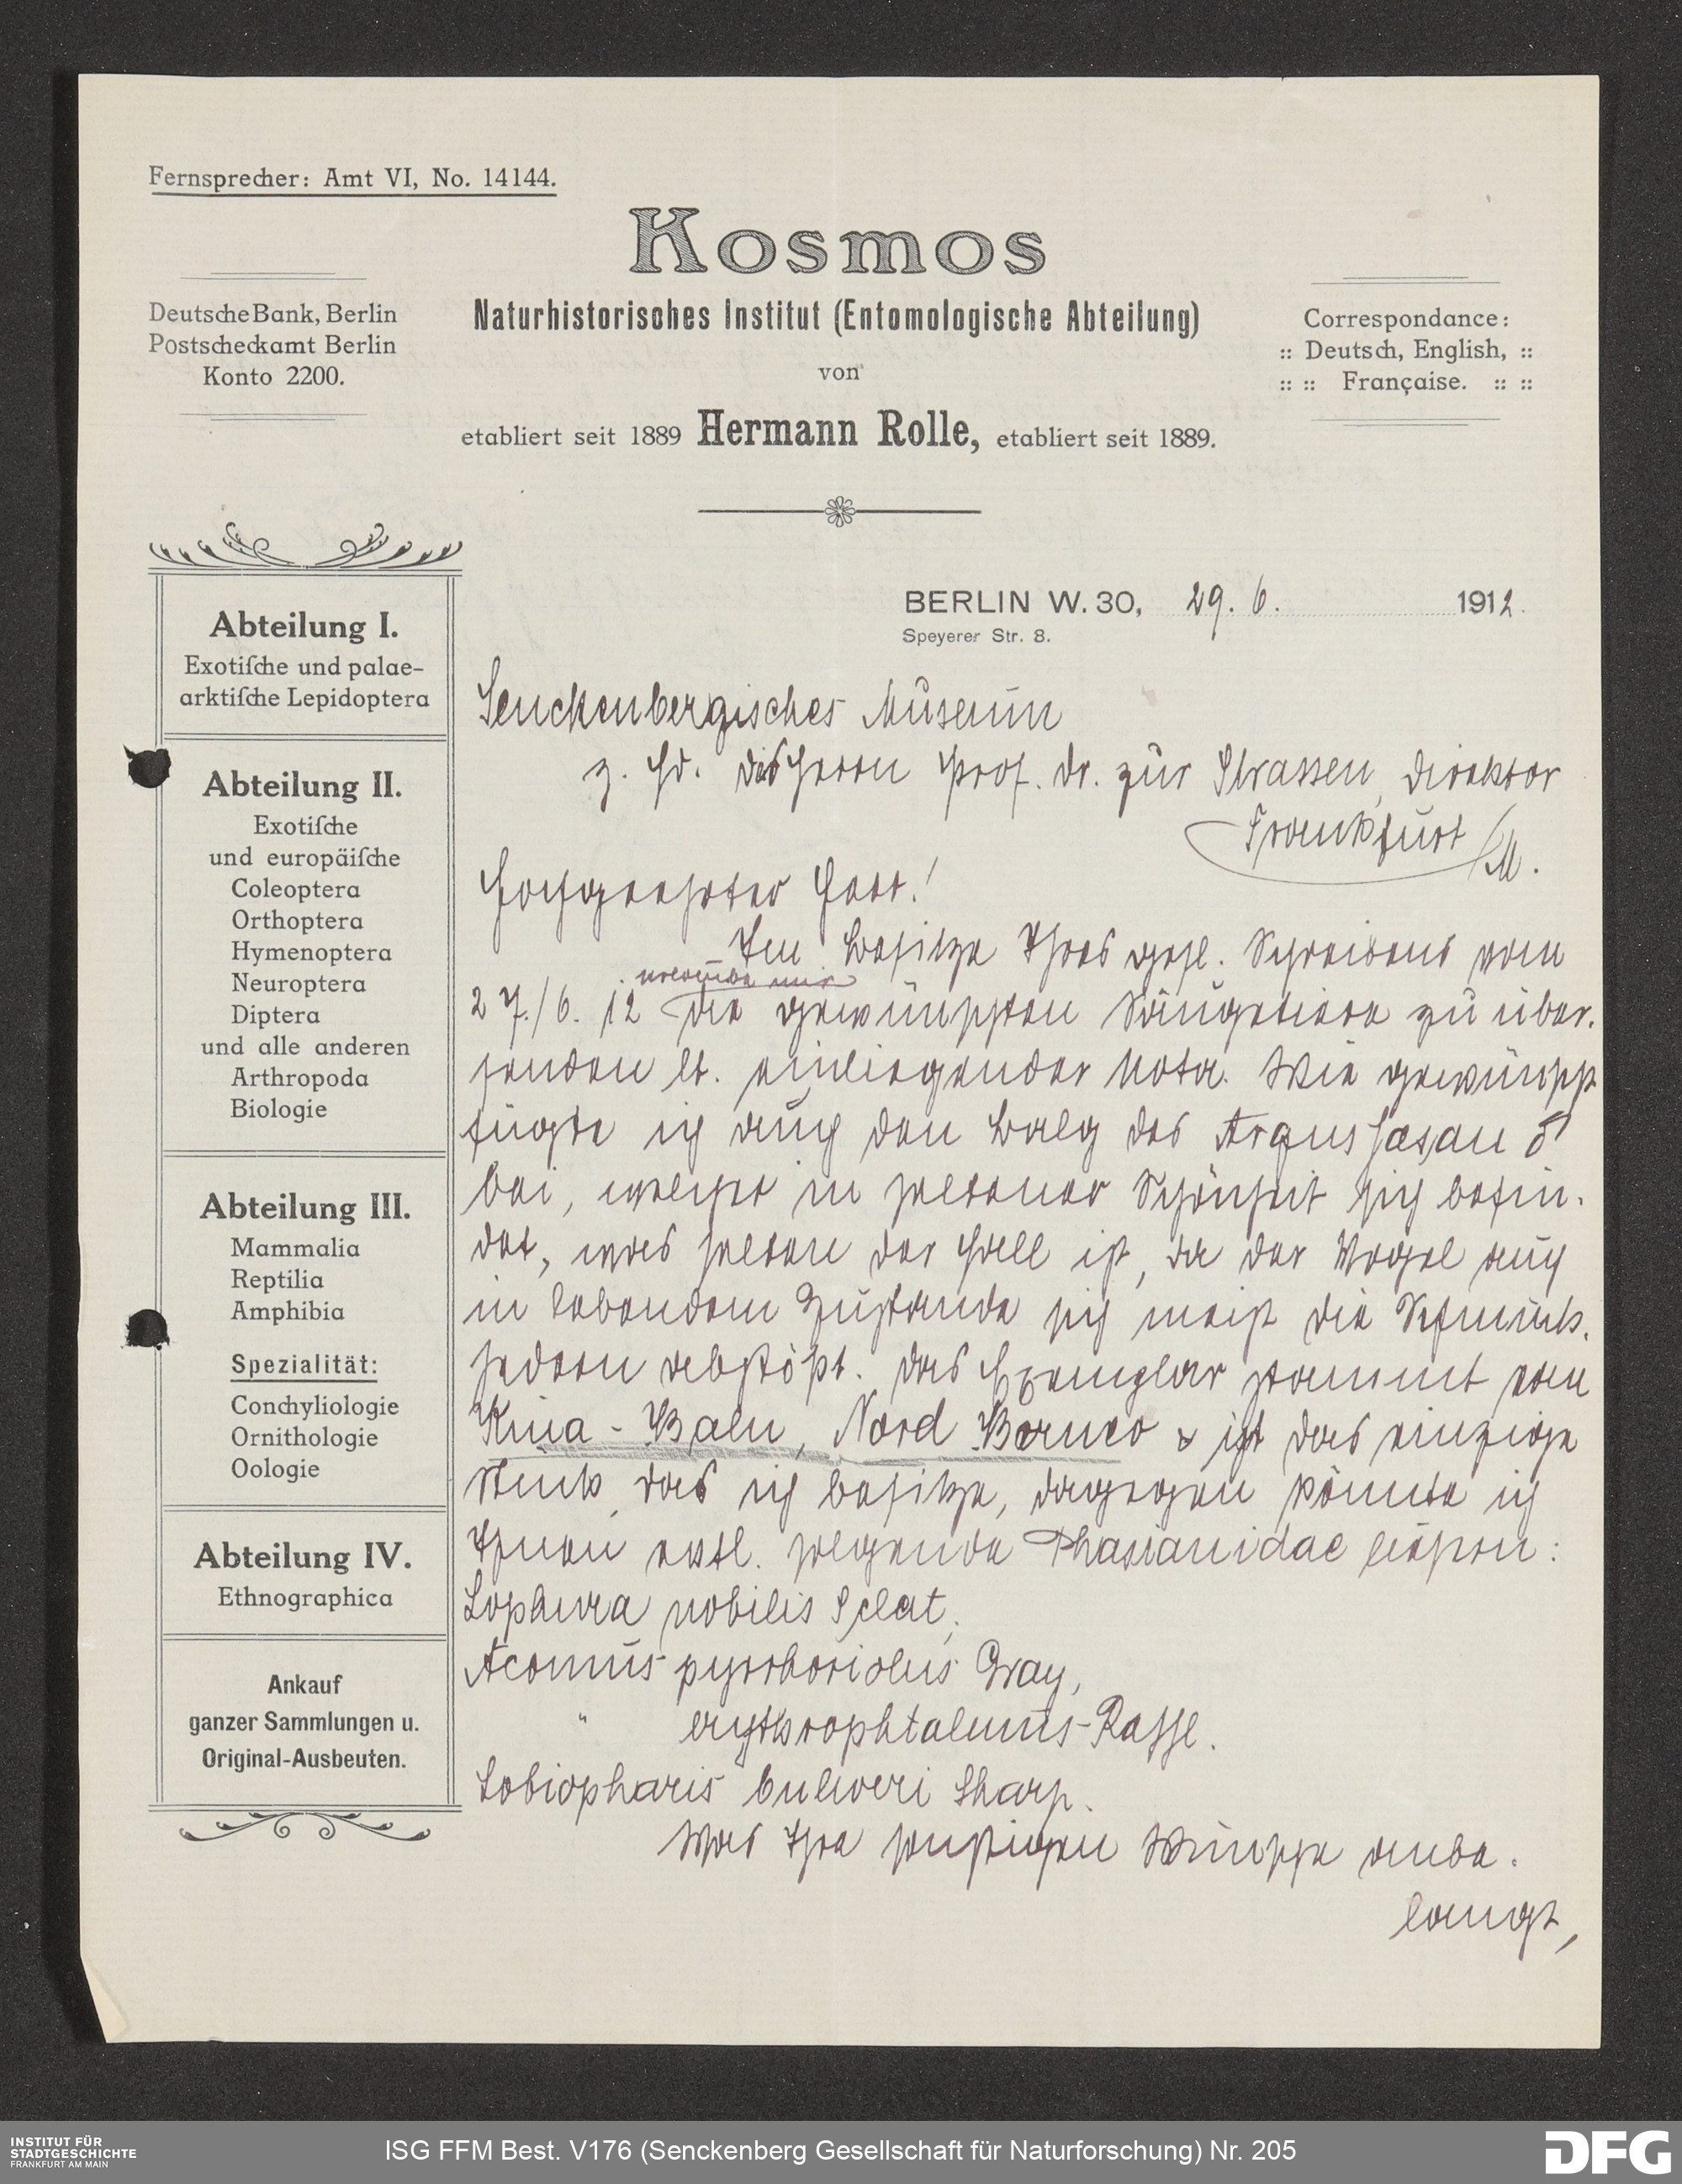 Fernsprecher: Amt VI, No. 14144.
Kosmos
Deutsche Bank, Berlin
Postscheckamt Berlin
Konto 2200.
Naturhistorisches Institut (Entomologische Abteilung)
von
etabliert seit 1889 Hermann Rolle, etabliert seit 1889.
Correspondance:
:: Deutsch, English, ::
:: :: Française. :: ::
Abteilung I.
Exotiſche und palae-
arktiſche Lepidoptera
Abteilung II.
Exotiſche
und europäiſche
Coleoptera
Orthoptera
Hymenoptera
Neuroptera
Diptera
und alle anderen
Arthropoda
Biologie
Abteilung III.
Mammalia
Reptilia
Amphibia
Spezialität:
Conchyliologie
Ornithologie
Oologie
Abteilung IV.
Ethnographica
Ankauf
ganzer Sammlungen u.
Original-Ausbeuten.
BERLIN W. 30, 29. 6. 1912.
Speyerer Str. 8.
Senckenbergisches Museum
z. Hd. des Herrn Prof. Dr. zur Strassen, Direktor
Frankfurt /M.
Hochgeehrter Herr!
Im Besitze Ihres gefl. Schreibens vom
erlaube mir
27./6. 12 die gewünschten Säugetiere zu über-
senden lt. einliegender Nota. Wie gewünscht
fügte ich auch den Balg des Argusfasan ♂
bei, welcher in seltener Schönheit sich befin-
det, was selten der Fall ist, da der Vogel auch
in lebendem Zustande sich meist die Schmuck-
federn abstößt. Das Exemplar stammt vom
Kina-Balu, Nord Borneo & ist das einzige
Stück das ich besitze, dagegen könnte ich
Ihnen evtl. folgende Phasianidae liefern:
Lophura nobilis Sclat,
Acomus pyrrhoriolus Gray,
" erythrophtalmus-Raffl.
Lobiopharis bulweri Sharp.
Was Ihre sonstigen Wünsche anbe-
langt,
INSTITUT FÜR
STADTGESCHICHTE
FRANKFURT AM MAIN
ISG FFM Best. V176 (Senckenberg Gesellschaft für Naturforschung) Nr. 205
DFG